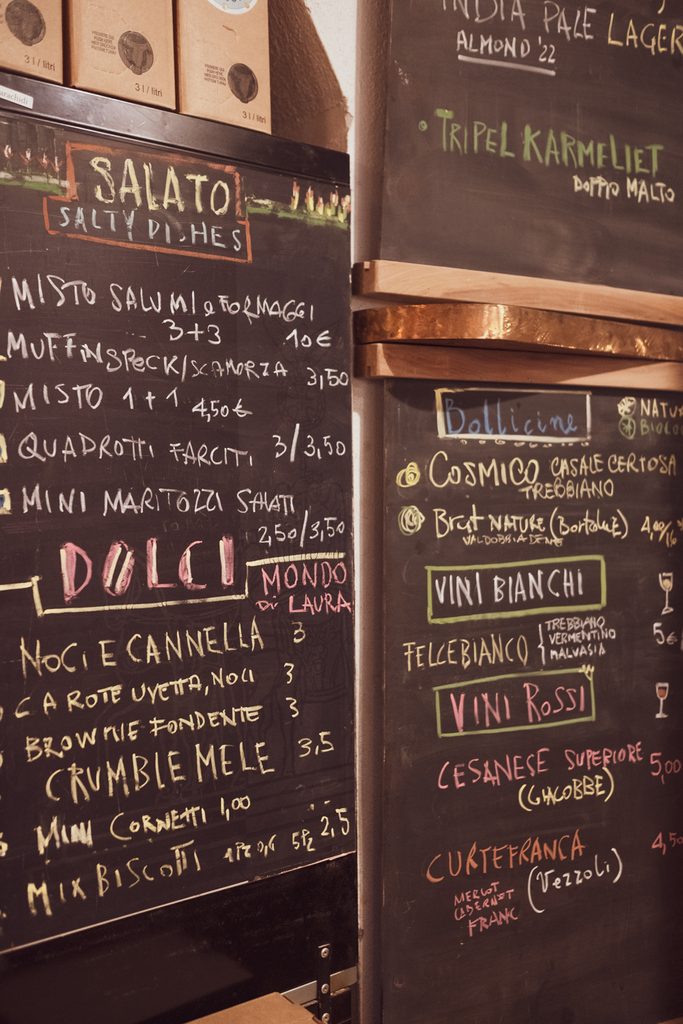 3 l / litri
3 l / litri
3 l / litri
SALATO
SALTY DISHES
MISTO SALUMI e FORMAGGI
3+3 10€
MUFFIN SPECK/SCAMORZA 3,50
MISTO 1+1 4,50€
QUADROTTI FARCITI 3/3,50
MINI MARITOZZI SALATI
2,50/3,50
DOLCI
MONDO
Di LAURA
NOCI E CANNELLA 3
CAROTE UVETTA, NOCI 3
BROWNIE FONDENTE 3
CRUMBLE MELE 3,5
MINI CORNETTI 1,00
MIX BISCOTTI 1PZ 0,6 5PZ 2,5
INDIA PALE LAGER
ALMOND '22
• TRIPEL KARMELIET
DOPPIO MALTO
Bollicine
NATU
BIOLO
COSMICO CASALE CERTOSA
TREBBIANO
Brut NATURE (Bortoluz)
VALDOBBIADENE
VINI BIANCHI
FELCEBIANCO { TREBBIANO
VERMENTINO
MALVASIA
5€
VINI ROSSI
CESANESE SUPERIORE 5,00
(GIACOBBE)
CURTEFRANCA 4,50
MERLOT
CABERNET
FRANC
(Vezzoli)